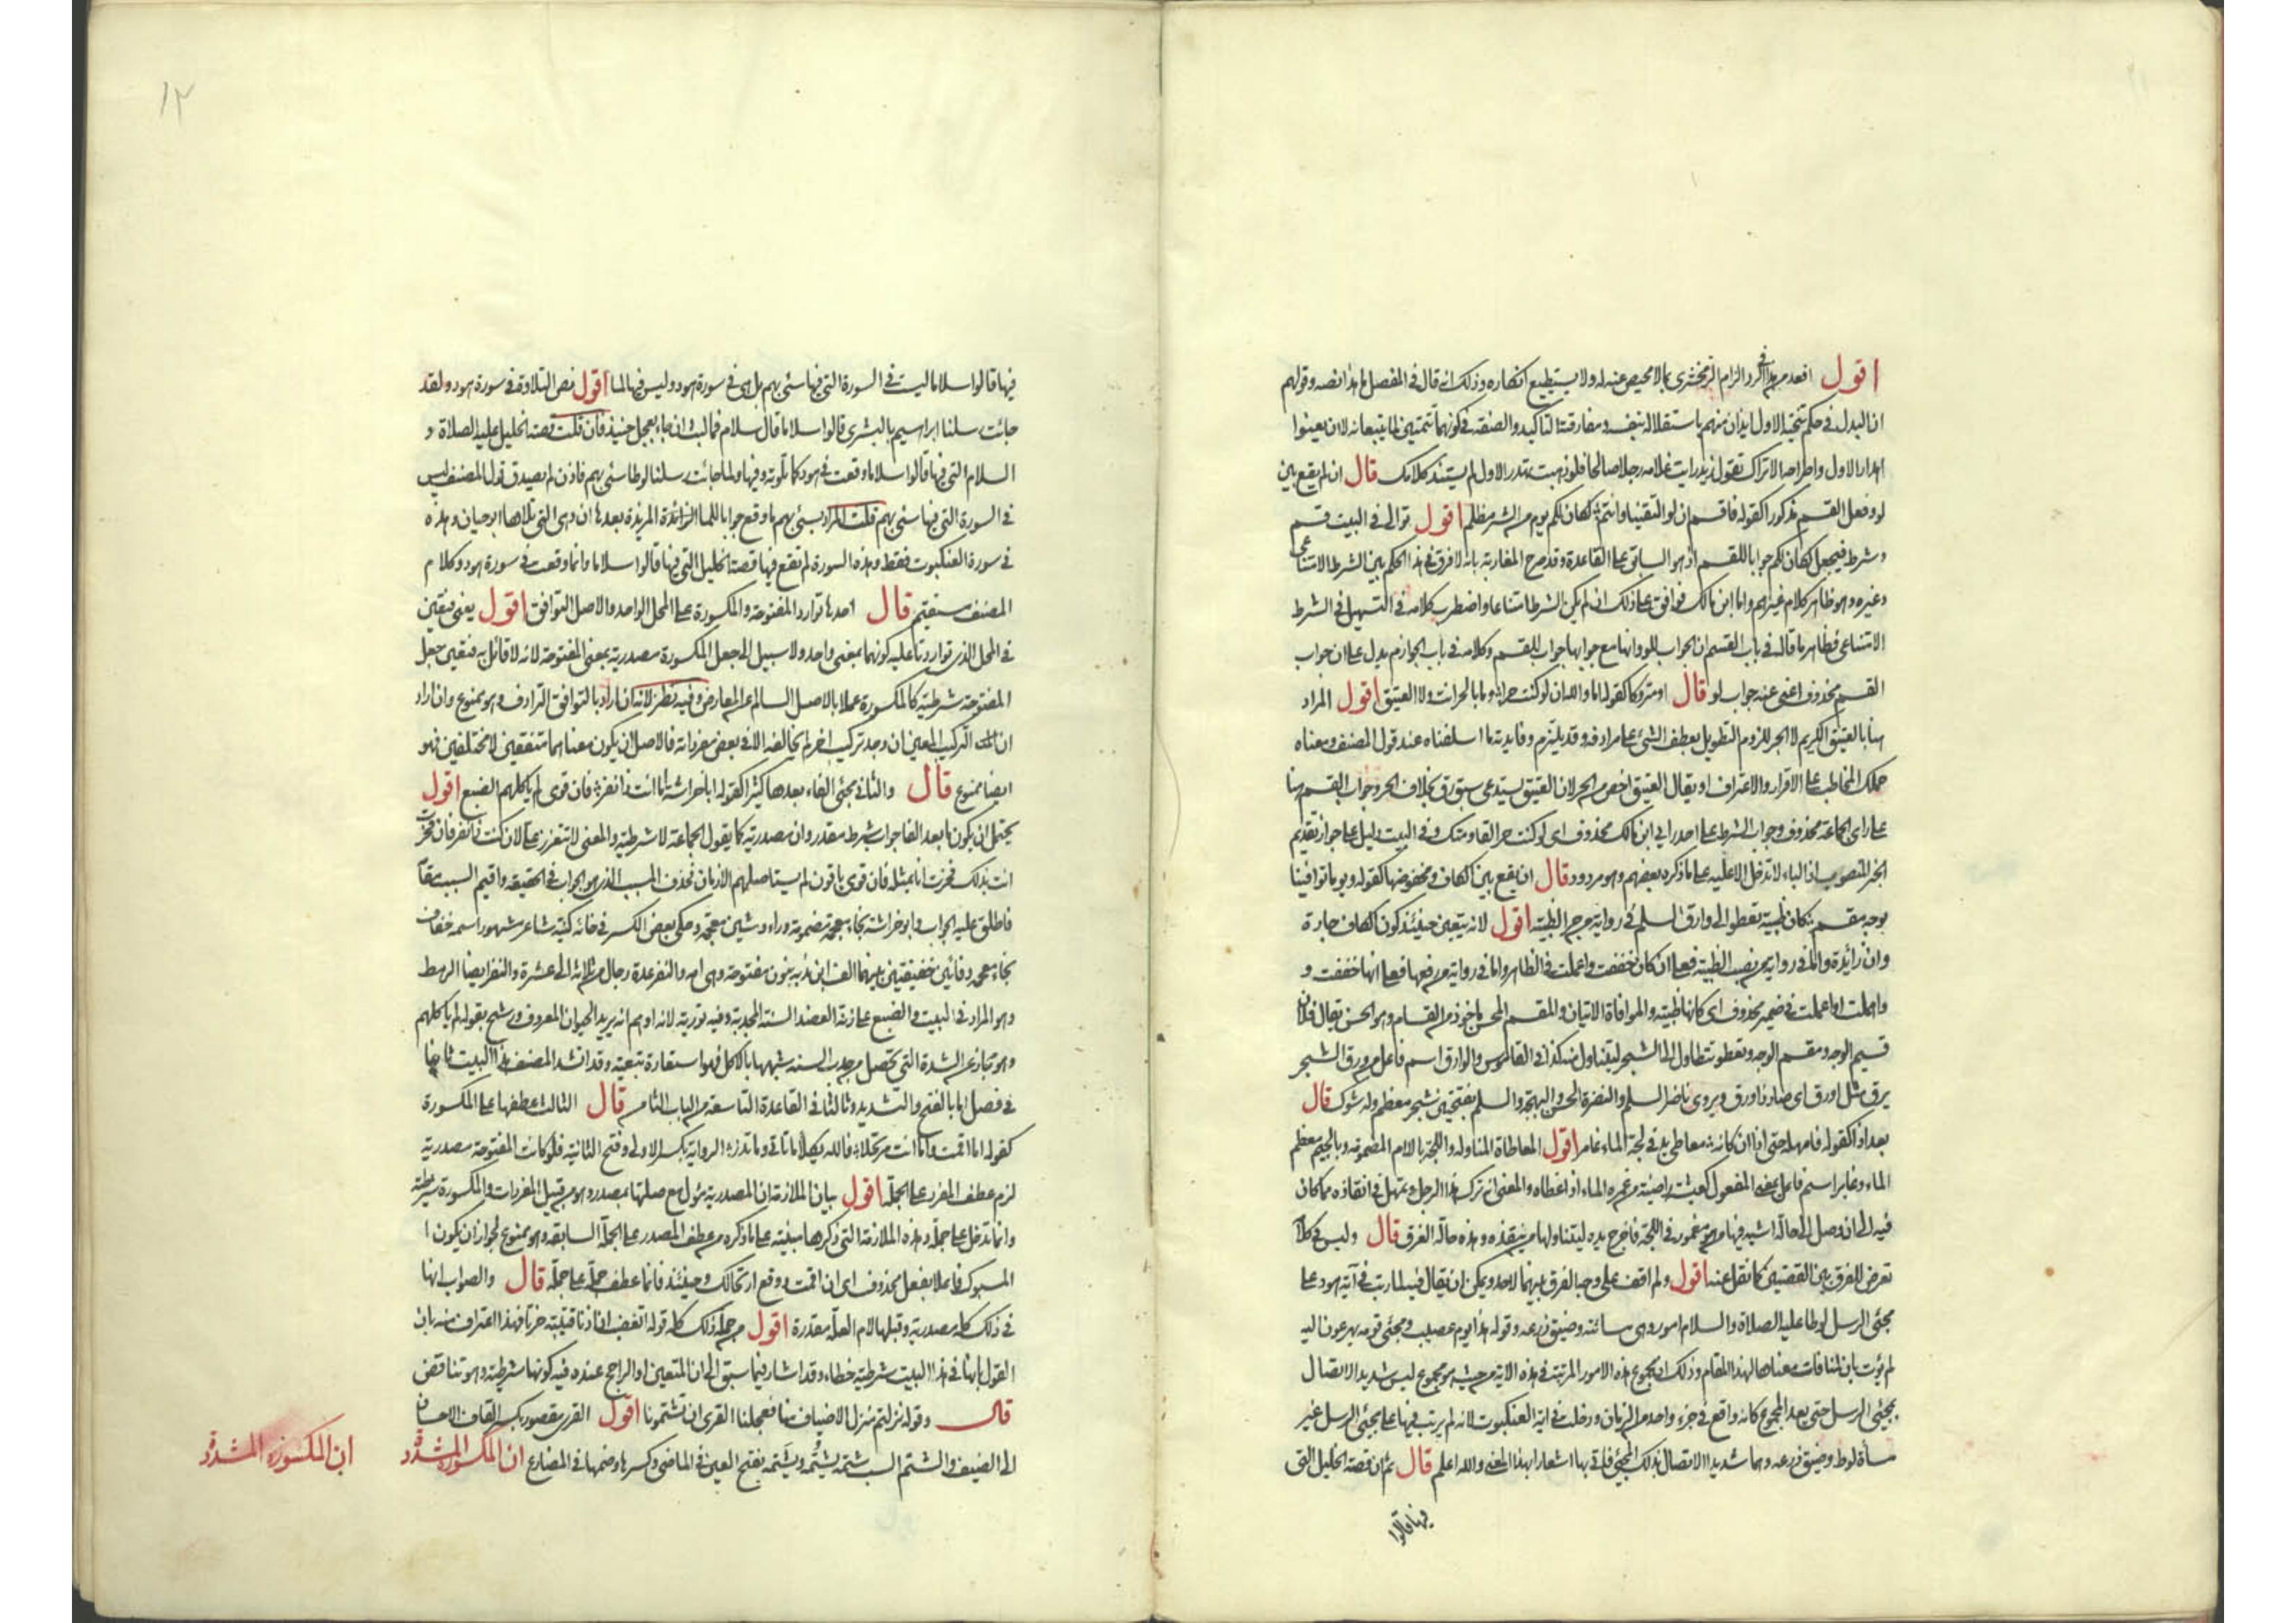 اقول اقعد من هذا في الرد الزام الزمخشرى بما لا محيص عنه له ولا يستطيع انكاره وذلك انه قال في المفصل ما هذا نصه وقولهم
ان البدل في حكم تنحية الاول ايذان منهم باستقلاله بنفسه ومفارقته التاكيد والصفة في كونهما تتمتين لما يتبعانه لا ان يعنوا
اهدار الاول واطراحه الا تراك تقول زيد رايت غلامه رجلا صالحا فلو ذهبت تهدر الاول لم يستند كلامك قال ان لم يقع بين
لو وفعل القسم مذكورا كقوله فاقسم ان لو التقينا وانتم لكان لكم يوم من الشر مظلم اقول توالى في البيت قسم
وشرط فيجعل لكان لكم جوابا للقسم اذ هو السابق على القاعدة وقد صرح المغاربة بانه لا فرق في هذا الحكم بين الشرط الامتناعى
وغيره وهو ظاهر كلام غيرهم واما ابن مالك فوافق على ذلك ان لم يكن الشرط امتناعا واضطرب كلامه في التسهيل في الشرط
الامتناعى فظاهر ما قاله في باب القسم ان الجواب للو وانها مع جوابها جواب للقسم وكلامه في باب الجوازم يدل على ان جواب
القسم محذوف اغنى عنه جواب لو قال او متروكا كقوله اما والله ان لو كنت حرا وما بالحر انت ولا العتيق اقول المراد
هنا بالعتيق الكريم لا الحر للزوم التطويل بعطف الشئ على مرادفه وقد يلتزم وفايدته ما اسلفناه عند قول المصنف ومعناه
حملك المخاطب على الاقرار والاعتراف او يقال العتيق اخص من الحر لان العتيق يستدعى سبق رق بخلاف الحر وجواب القسم هنا
على راى الجماعة محذوف وجواب الشرط على احد رايى ابن مالك محذوف اى لو كنت حرا لقاومتك وفي البيت دليل على جواز تقديم
الخبر المنصوب اذ الباء لا تدخل الا عليه على ما ذكره بعضهم وهو مردود قال ان يقع بين الكاف ومخفوضها كقوله ويوما توافينا
بوجه مقسم كان ظبية تعطوا الى وارق السلم في رواية من جر الظبية اقول لانه يتعين حينئذ كون الكاف جارة
وان زائدة واما في رواية من نصب الظبية فعلى ان كان خففت واعملت في الظاهر واما في رواية من رفعها فعلى انها خففت و
واهملت او اعملت في ضمير محذوف اى كانها ظبية والموافاة الاتيان والمقسم المحسن ماخوذ من القسام وهو الحسن يقال فلان
قسيم الوجه ومقسم الوجه وتعطو تتطاول الى الشجر ليتناول منه كذا في القاموس والوارق اسم فاعل من ورق الشجر
يرق مثل اورق اى صار ذا ورق ويروى ناضر السلم والنضرة الحسن والبهجة والسلم بفتحتين شجر معظم وله شوك قال
بعد اذا كقوله فامهله حتى اذا ان كانه معاطى يد في لجة الماء غامر اقول المعاطاة المناولة واللجة بالام المضمومة وبالجيم معظم
الماء وغامر اسم فاعل بمعنى المفعول كعيشة راضية من غمره الماء اذا غطاه والمعنى انه ترك هذا الرجل وتمهل في انقاذه مما كان
فيه الى ان وصل الى حالة اشبه فيها من هو مغمور في اللجة فاخرج يده ليتناولها من ينقذه وهذه حالة الغرق قال وليس في كلامه
تعرض للفرق بين القصتين كما نقل عنه اقول ولم اقف على وجه الفرق بينهما لاحد ويمكن ان يقال فيه لما رتب في آية هود على
مجئى الرسل لوطا عليه الصلاة والسلام امورا وهى مسائته وضيق ذرعه وقوله هذا يوم عصيب ومجئى قومه يهرعون اليه
لم يؤت بان لمنافات معناها لهذا المقام وذلك ان مجموع هذه الامور المرتبة في هذه الاية من حيث هو مجموع ليس شديد الاتصال
بمجئى الرسل حتى يعد المجموع كانه واقع في جزء واحد من الزمان ودخلت في اية العنكبوت لانه لم يرتب فيها على مجئى الرسل غير
مساة لوط وضيق ذرعه وهما شديدا الاتصال بذلك المجئى فاتى بها اشعارا بهذا المعنى والله اعلم قال ثم ان قصة الخليل التى
فيها قالوا
١٢
فيها قالوا سلاما ليست في السورة التى فيها سئ بهم بل هى في سورة هود وليس فيها لما اقول نص التلاوة في سورة هود ولقد
جائت رسلنا ابراهيم بالبشرى قالوا سلاما قال سلام فما لبث ان جاء بعجل حنيذ فان قلت قصة الخليل عليه الصلاة و
السلام التى فيها قالوا سلاما وقعت في هود كما تلوته وفيها ولما جائت رسلنا لوطا سئ بهم فاذن لم يصدق قول المصنف ليس
في السورة التى فيها سئ بهم قلت المراد بسئ بهم ما وقع جوابا للما الزائدة المزيدة بعدها ان وهى التى تلاها ابو حيان وهذه
في سورة العنكبوت فقط وهذه السورة لم تقع فيها قصة الخليل التى فيها قالوا سلاما وانما وقعت في سورة هود وكلام
المصنف مستقيم قال احدها توارد المفتوحة والمكسورة على المحل الواحد والاصل التوافق اقول يعنى فيتعين
في المحل الذى تواردتا عليه كونهما بمعنى واحد ولا سبيل الى جعل المكسورة مصدرية بمعنى المفتوحة لانه لا قائل به فتعين جعل
المفتوحة شرطية كالمكسورة عملا بالاصل السالم عن المعارض وفيه نظر لانه ان اراد بالتوافق الترادف وهو ممنوع وان اراد
ان التركيب المعين ان وجد تركيب اخر لم يخالفه الا في بعض مفرداته فالاصل ان يكون معناهما متفقين لا مختلفين فهو
ايضا ممنوع قال والثانى مجئى الفاء بعدها كثيرا كقوله ابا خراشة اما انت ذا نفر فان قومى لم ياكلهم الضبع اقول
يحتمل ان يكون ما بعد الفا جواب شرط مقدر وان مصدرية كما يقول الجماعة لا شرطية والمعنى لا تتعزز على لان كنت ذا نفر فان فخرت
انت بذلك فخرت انا بمثله فان قومى باقون لم يستاصلهم الازمان فحذف المسبب الذى هو الجواب في الحقيقة واقيم السبب مقامه
فاطلق عليه الجواب وابو خراشة بخاء معجمة مضمومة وراء وشين معجمة وحكى بعض الكسر في خائه كنية شاعر مشهور اسمه خفاف
بخاء معجمة وفائين خفيفتين بينهما الف ابن ندبة بنون مفتوحة وهى امه والنفر عدة رجال من ثلاثة الى عشرة والنفر ايضا الرهط
وهو المراد في البيت والضبع على زنة العضد السنة المجدبة وفيه تورية لانه اوهم انه يريد الحيوان المعروف ورشح بقوله لم ياكلهم
وهو مجاز عن الشدة التى تحصل من جدب السنة شبهها بالاكل فهو استعارة تبعية وقد انشد المصنف هذا البيت ثانيا
في فصل اما بالفتح والتشديد وثالثا في القاعدة التاسعة من الباب الثامن قال الثالث عطفها على المكسورة
كقوله اما اقمت واما انت مرتحلا فالله يكلأ ما تاتى وما تذر الرواية بكسر الاولى وفتح الثانية فلو كانت المفتوحة مصدرية
لزم عطف المفرد على الجملة اقول بيان الملازمة ان المصدرية يئول مع صلتها بمصدر وهو من قبيل المفردات والمكسورة شرطية
وانما تدخل على جملة وهذه الملازمة التى ذكرها مبنية على ما ذكره من عطف المصدر على الجملة السابقة وهو ممنوع لجواز ان يكون ا
المسبوك فاعلا بفعل محذوف اى ان اقمت ووقع ارتحالك وحينئذ فانما عطف جملة على جملة قال والصواب انها
في ذلك كله مصدرية وقبلها لام العلة مقدرة اقول من جملة ذلك كله قوله اتغضب ان اذنا قتيبة حزتا فهذا اعتراف منه بان
القول بانها في هذا البيت شرطية خطاء وقد اشار فيما سبق الى ان المتعين او الراجح عنده فيه كونها شرطية وهو تناقض
قال وقوله نزلتم منزل الاضياف منا فعجلنا القرى ان تشتمونا اقول القرى مقصور بكسر القاف الاحسان
الى الضيف والشتم السب شتمه يشتمه ويشتمه بفتح العين في الماضى وكسرها وضمها في المضارع ان المكسورة المشددة
ان المكسورة المشددة